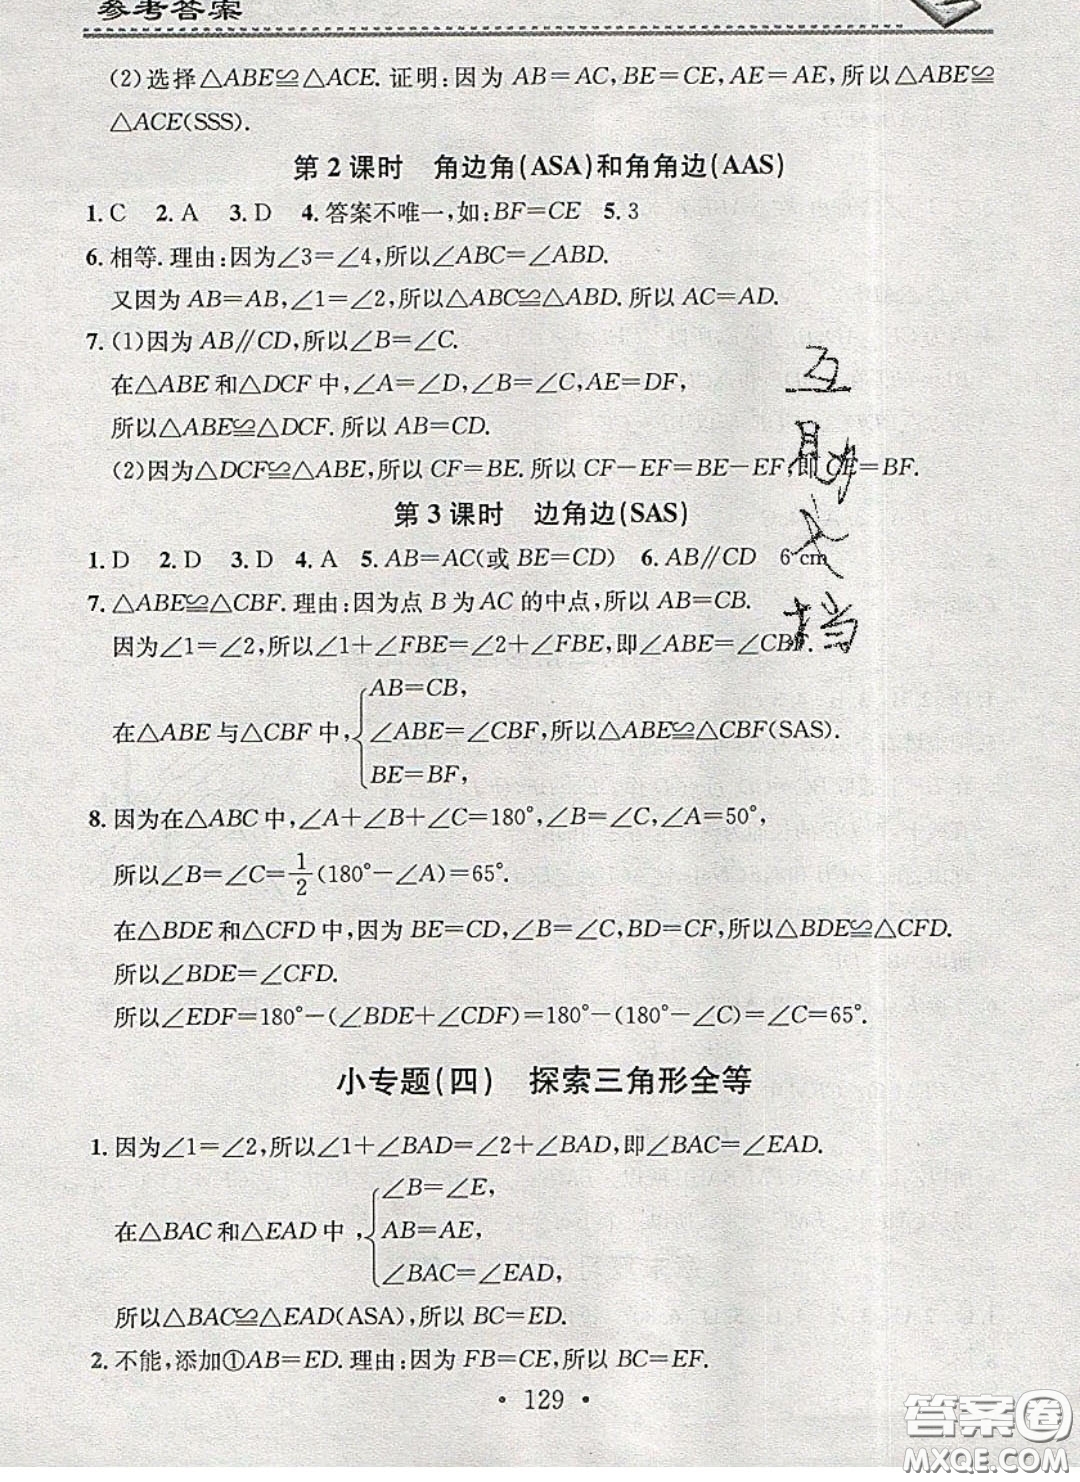 参考答案
(2)选择△ABE≌△ACE.证明:因为 AB=AC,BE=CE,AE=AE,所以△ABE≌
△ACE(SSS).
第2课时 角边角(ASA)和角角边(AAS)
1.C 2.A 3.D 4.答案不唯一,如:BF=CE 5.3
6.相等.理由:因为∠3=∠4,所以∠ABC=∠ABD.
又因为 AB=AB,∠1=∠2,所以△ABC≌△ABD.所以 AC=AD.
7.(1)因为 AB∥CD,所以∠B=∠C.
在△ABE 和△DCF 中,∠A=∠D,∠B=∠C,AE=DF,
所以△ABE≌△DCF.所以 AB=CD.
(2)因为△DCF≌△ABE,所以 CF=BE.所以 CF-EF=BE-EF,即 CE=BF.
第3课时 边角边(SAS)
1.D 2.D 3.D 4.A 5.AB=AC(或 BE=CD) 6.AB∥CD 6 cm
7.△ABE≌△CBF.理由:因为点 B 为 AC 的中点,所以 AB=CB.
因为∠1=∠2,所以∠1+∠FBE=∠2+∠FBE,即∠ABE=∠CBF.
AB=CB,
在△ABE 与△CBF 中, ∠ABE=∠CBF,所以△ABE≌△CBF(SAS).
BE=BF,
8.因为在△ABC 中,∠A+∠B+∠C=180°,∠B=∠C,∠A=50°,
所以∠B=∠C=1/2(180°-∠A)=65°.
在△BDE 和△CFD 中,因为 BE=CD,∠B=∠C,BD=CF,所以△BDE≌△CFD.
所以∠BDE=∠CFD.
所以∠EDF=180°-(∠BDE+∠CDF)=180°-(180°-∠C)=∠C=65°.
小专题(四) 探索三角形全等
1.因为∠1=∠2,所以∠1+∠BAD=∠2+∠BAD,即∠BAC=∠EAD.
∠B=∠E,
在△BAC 和△EAD 中, AB=AE,
∠BAC=∠EAD,
所以△BAC≌△EAD(ASA),所以 BC=ED.
2.不能,添加①AB=ED.理由:因为 FB=CE,所以 BC=EF.
· 129 ·
答案圈
MXQE.COM